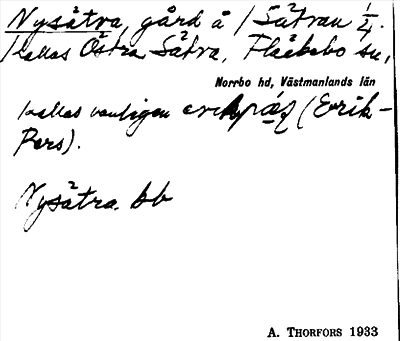 Nysätra, gård å /Sätran 1/4.
/kallas Östra Sätra, Fläckebo sn,
Norrbo hd, Västmanlands län
kallas vanligen (Erik-
Pers).
Nysätra. bb
A. THORFORS 1933